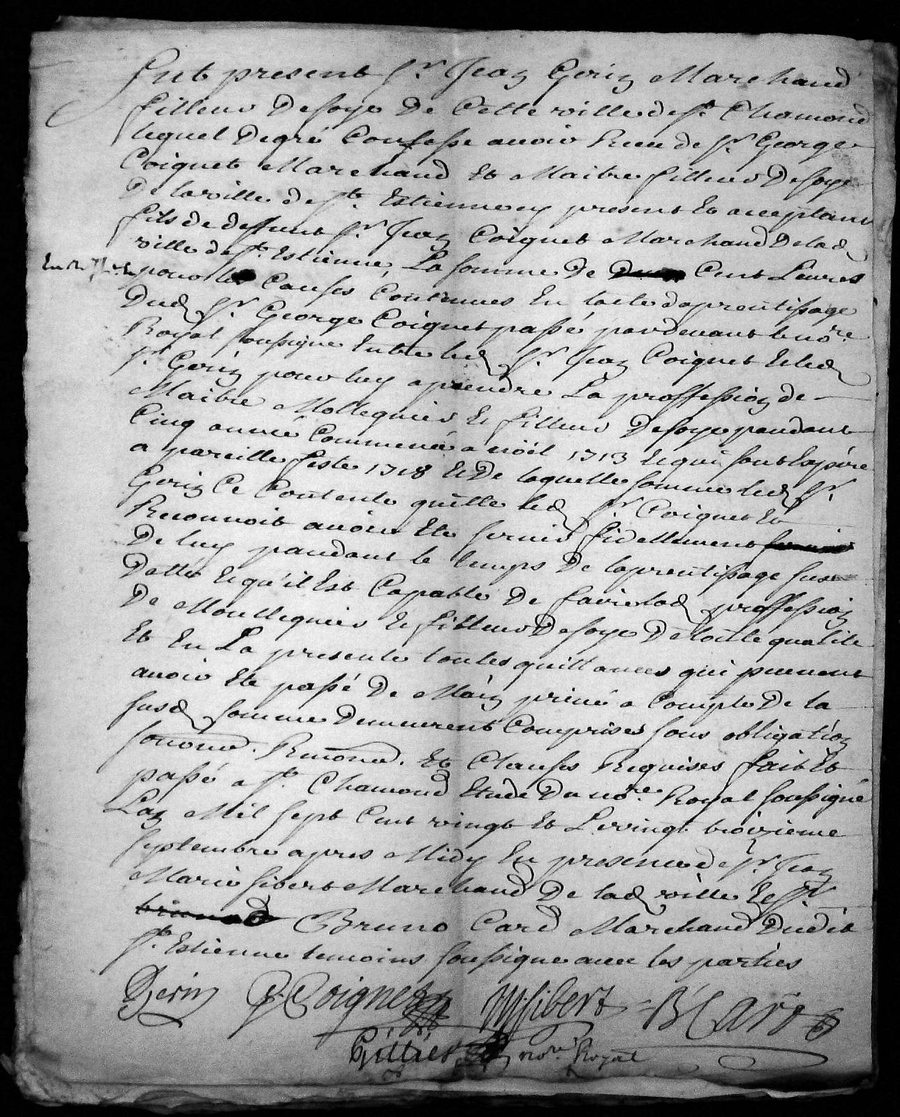 fut present Sr. Jean Gerin Marchand
filleur de soye de Cette ville de St. Chamond
lequel de gré Confesse avoir Receu de Sr. George
Coignet Marchand et Maitre filleur de soye
de la ville de St. Estienne y present et acceptant
fils de deffunt Sr. Jean Coignet Marchand de lad
ville de St. Estienne, La somme de Cent Livres
pour les Causes Contenues En lacte daprentissage
Dud Sr. George Coignet passé pardevant le nore.
Royal soussigné Entre led Sr. Jean Coignet et led
Sr. Gerin pour luy aprendre La proffession de
Maitre Mollegnié et filleur de soye pendant
Cinq année Commencé a noël 1713 et qui sont expiré
a pareille feste 1718 et De laquelle somme led Sr.
Gerin Ce Contente quitte led Sr. Coignet et
Reconnoit avoir Ete servis fidellement
De luy pandant le temps De laprentissage sus
datte et qu'il Est Capable De faire lad proffession
De Moullegnié et filleur de soye De toute qualité
Et En La presente toutes quittances qui peuvent
avoir Ete passé De Main privé a Compte De la
susd somme Demeurent Comprises sous obligation
Renond. Et Clauses Requises fait et
passé a St. Chamond Etude Du nore. Royal soussigné
Lan Mil sept Cent vingt et Le vingt troizieme
septembre apres Midy En presence de Sr. Jean
Marie sibert Marchand De lad ville et Sr
Bruno Card Marchand Dudit
St. Estienne temoins soussigné avec les parties
Gerin G Coignet JM sibert B Card
Gillier nore. Royal